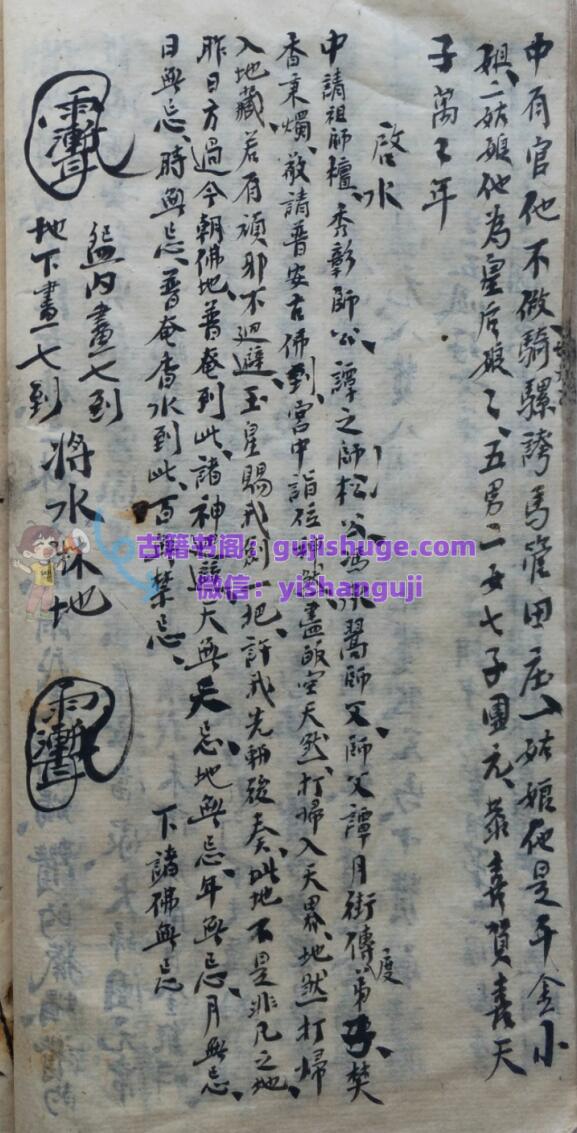 中有官他不做騎騾誇馬管田庄一姑娘他是千金小
姐二姑娘他為皇后娘々五男二女七子團元恭喜賀喜天
子萬々年
啓水
申請祖師檀秀彰師公譚之師松公馮永翯師父師父譚月街傳度弟子焚
香秉燭敬請普安古佛到宮中諸位神盡皈空天然打歸入天界地然打歸
入地藏若有頑邪不迴避玉皇賜我劍一把許我先斬後奏此地不是非凡之地
昨日方過今朝佛地普庵到此諸神迴避天無忌地無忌年無忌月無忌
日無忌時無忌普庵香水到此百無禁忌
下諸佛無忌
雨漸耳
盌內畫一七到
地下畫一七到
將水抹地
雨漸耳
古籍书阁：gujishuge.com
微信：yishanguji